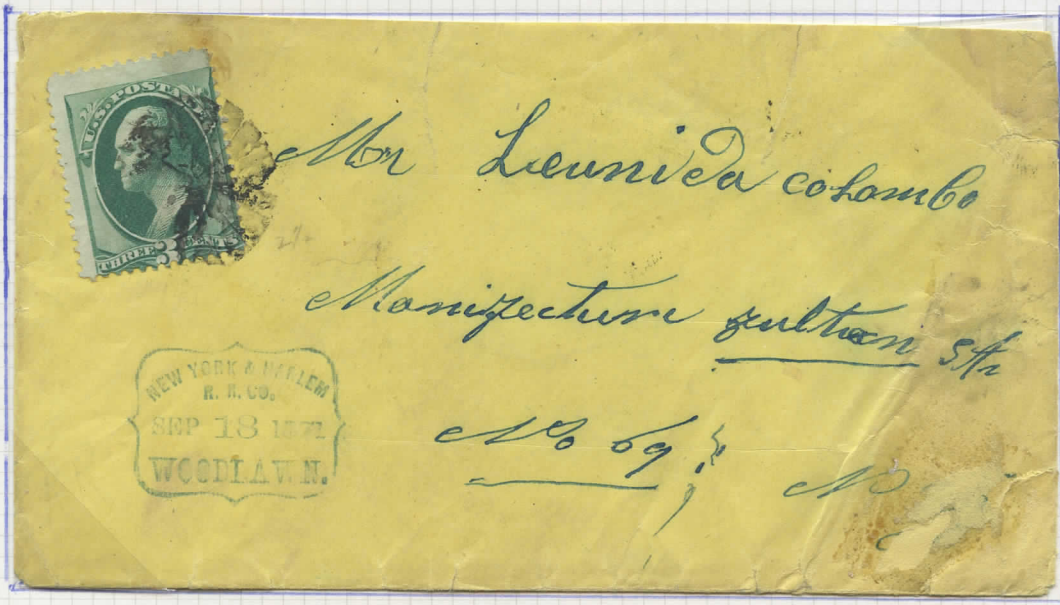 U.S. POSTAGE
THREE 3 CENTS
Mr Leunida colombo
Manizecture zultan Str
No 69
N
NEW YORK & HARLEM
R. R. CO.
SEP 18 1871
WOODLAWN.